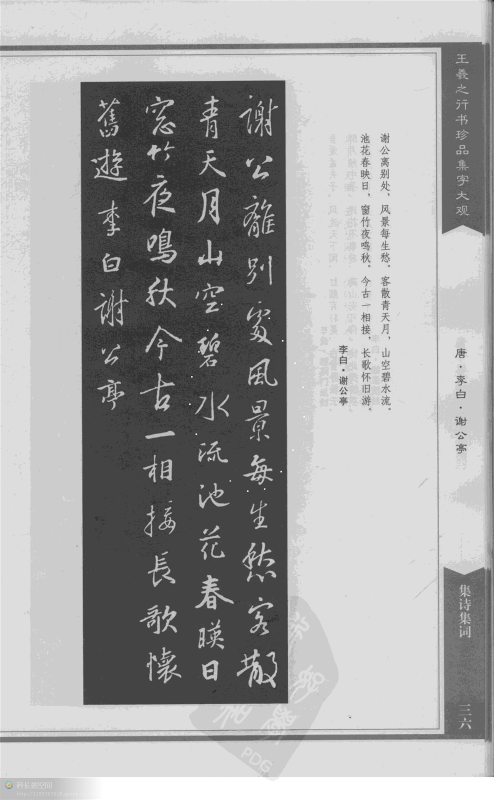 王羲之行书珍品集字大观
唐·李白·谢公亭
集诗集词
三六
谢公离别处，风景每生愁。客散青天月，山空碧水流。
池花春映日，窗竹夜鸣秋。今古一相接，长歌怀旧游。
李白·谢公亭
謝公離別處風景每生愁客散
青天月山空碧水流池花春暎日
窓竹夜鳴秋今古一相接長歌懷
舊遊李白謝公亭
PDG